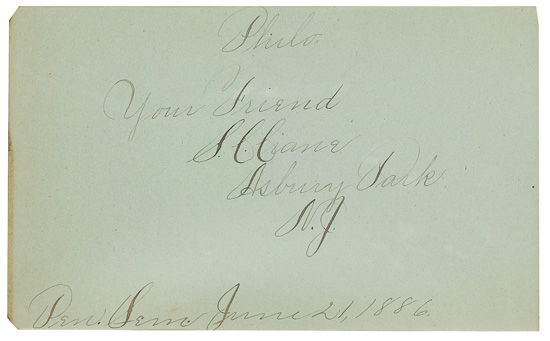 Philo.
Your Friend
S. C. Crane
Asbury Park
N.J.
Pen. Sem. June 21, 1886.